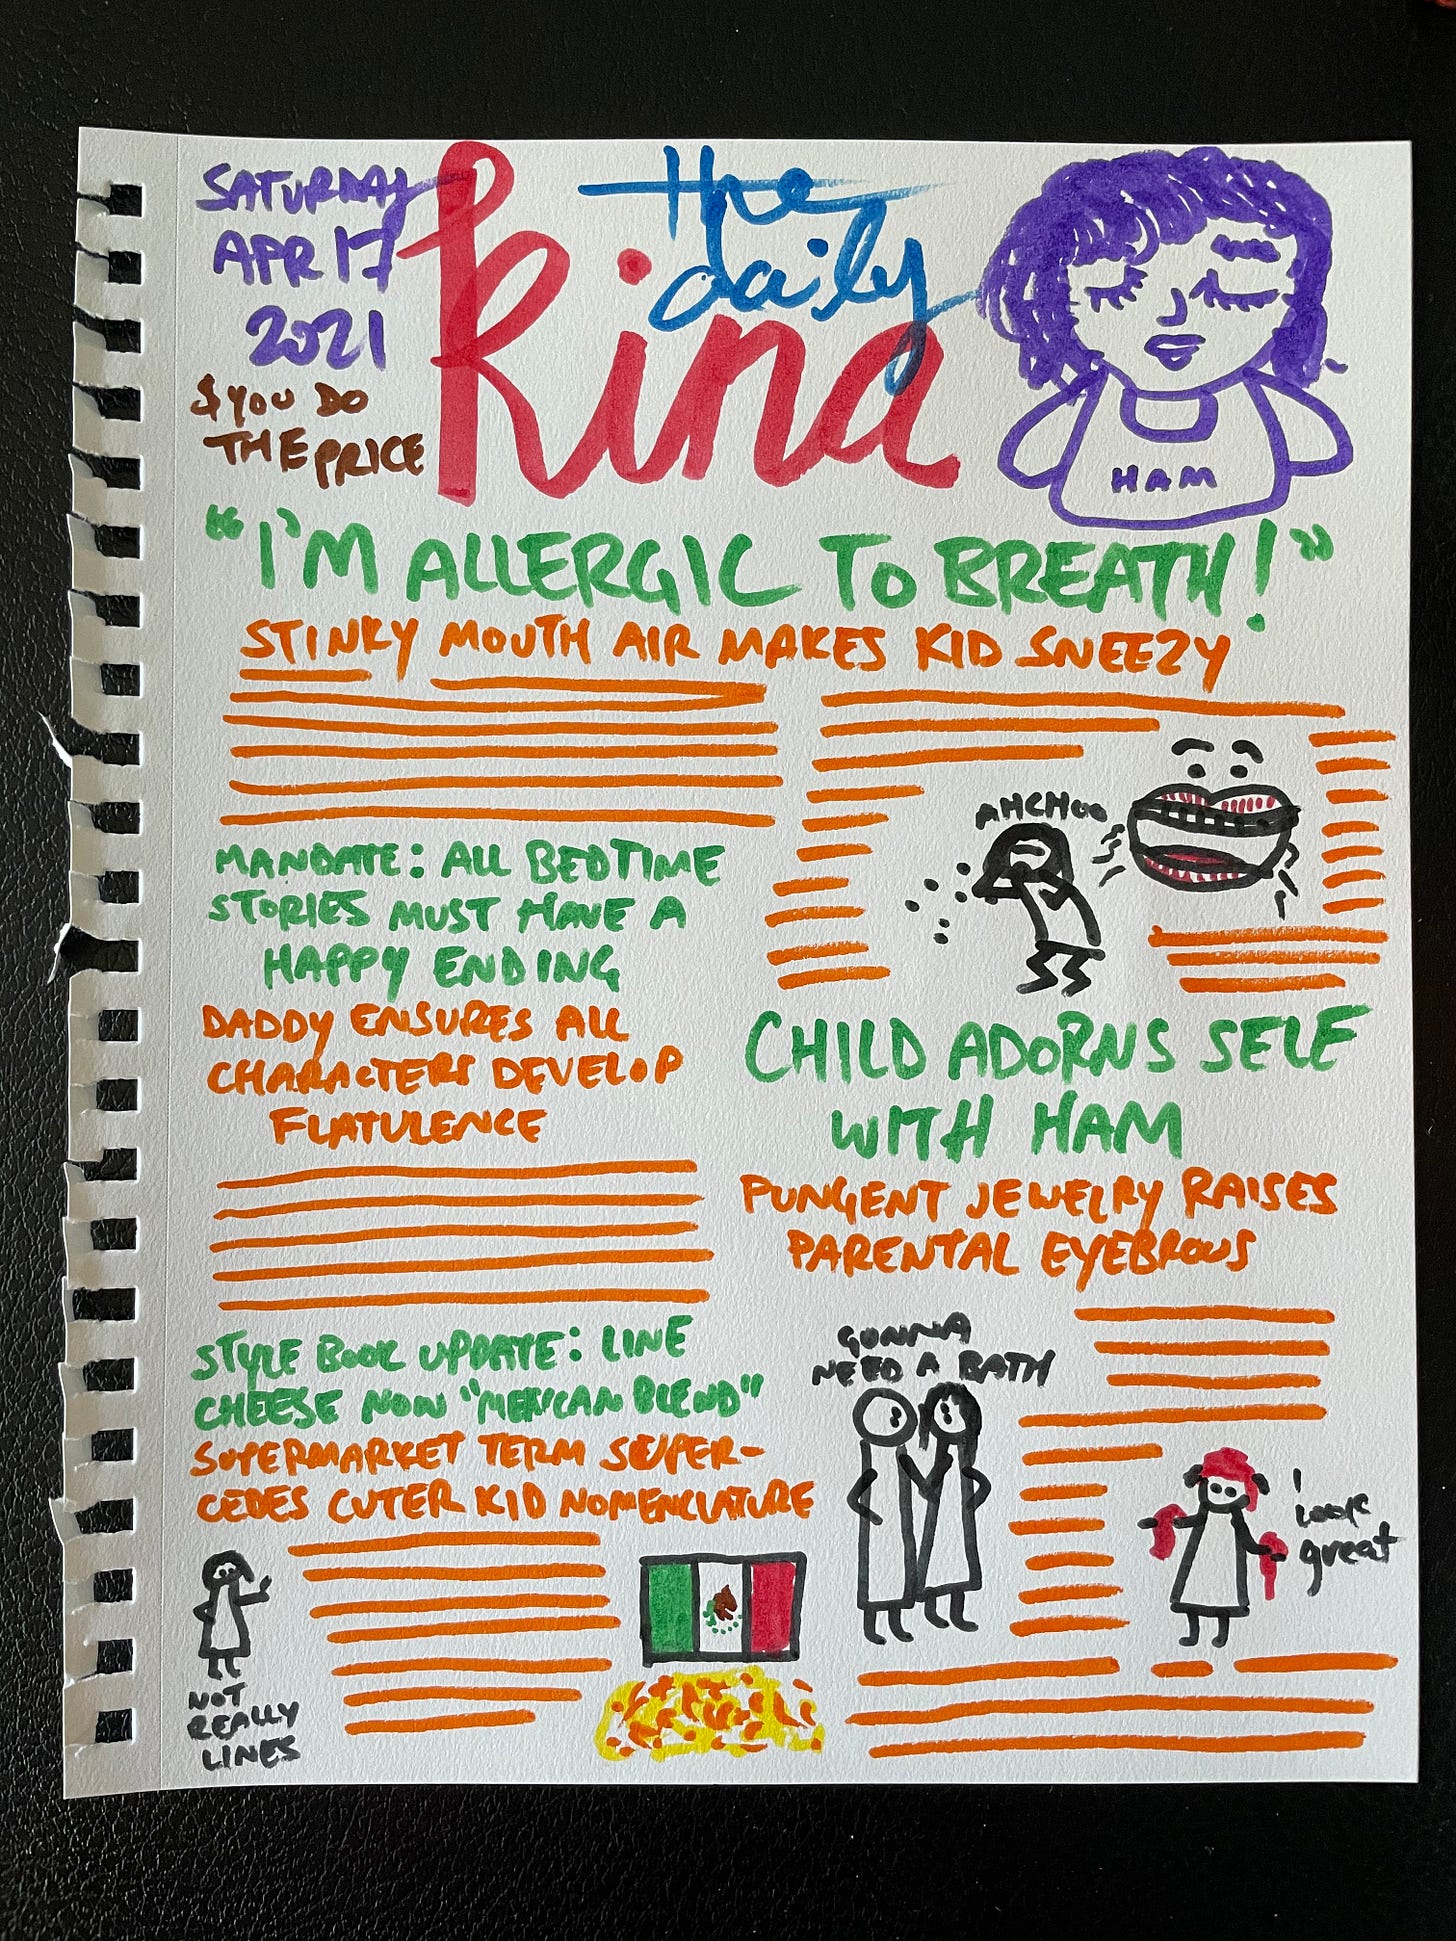 SATURDAY
APR 17
2021
$ YOU DO
THE PRICE
the
daily
Rina
HAM
"I'M ALLERGIC TO BREATH!"
STINKY MOUTH AIR MAKES KID SNEEZY
AHCHOO
MANDATE: ALL BEDTIME
STORIES MUST HAVE A
HAPPY ENDING
DADDY ENSURES ALL
CHARACTERS DEVELOP
FLATULENCE
CHILD ADORNS SELF
WITH HAM
PUNGENT JEWELRY RAISES
PARENTAL EYEBROWS
GONNA
NEED A BATH
I
look
great
STYLE BOOK UPDATE: LINE
CHEESE NOW "MEXICAN BLEND"
SUPERMARKET TERM SUPER-
CEDES CUTER KID NOMENCLATURE
NOT
REALLY
LINES